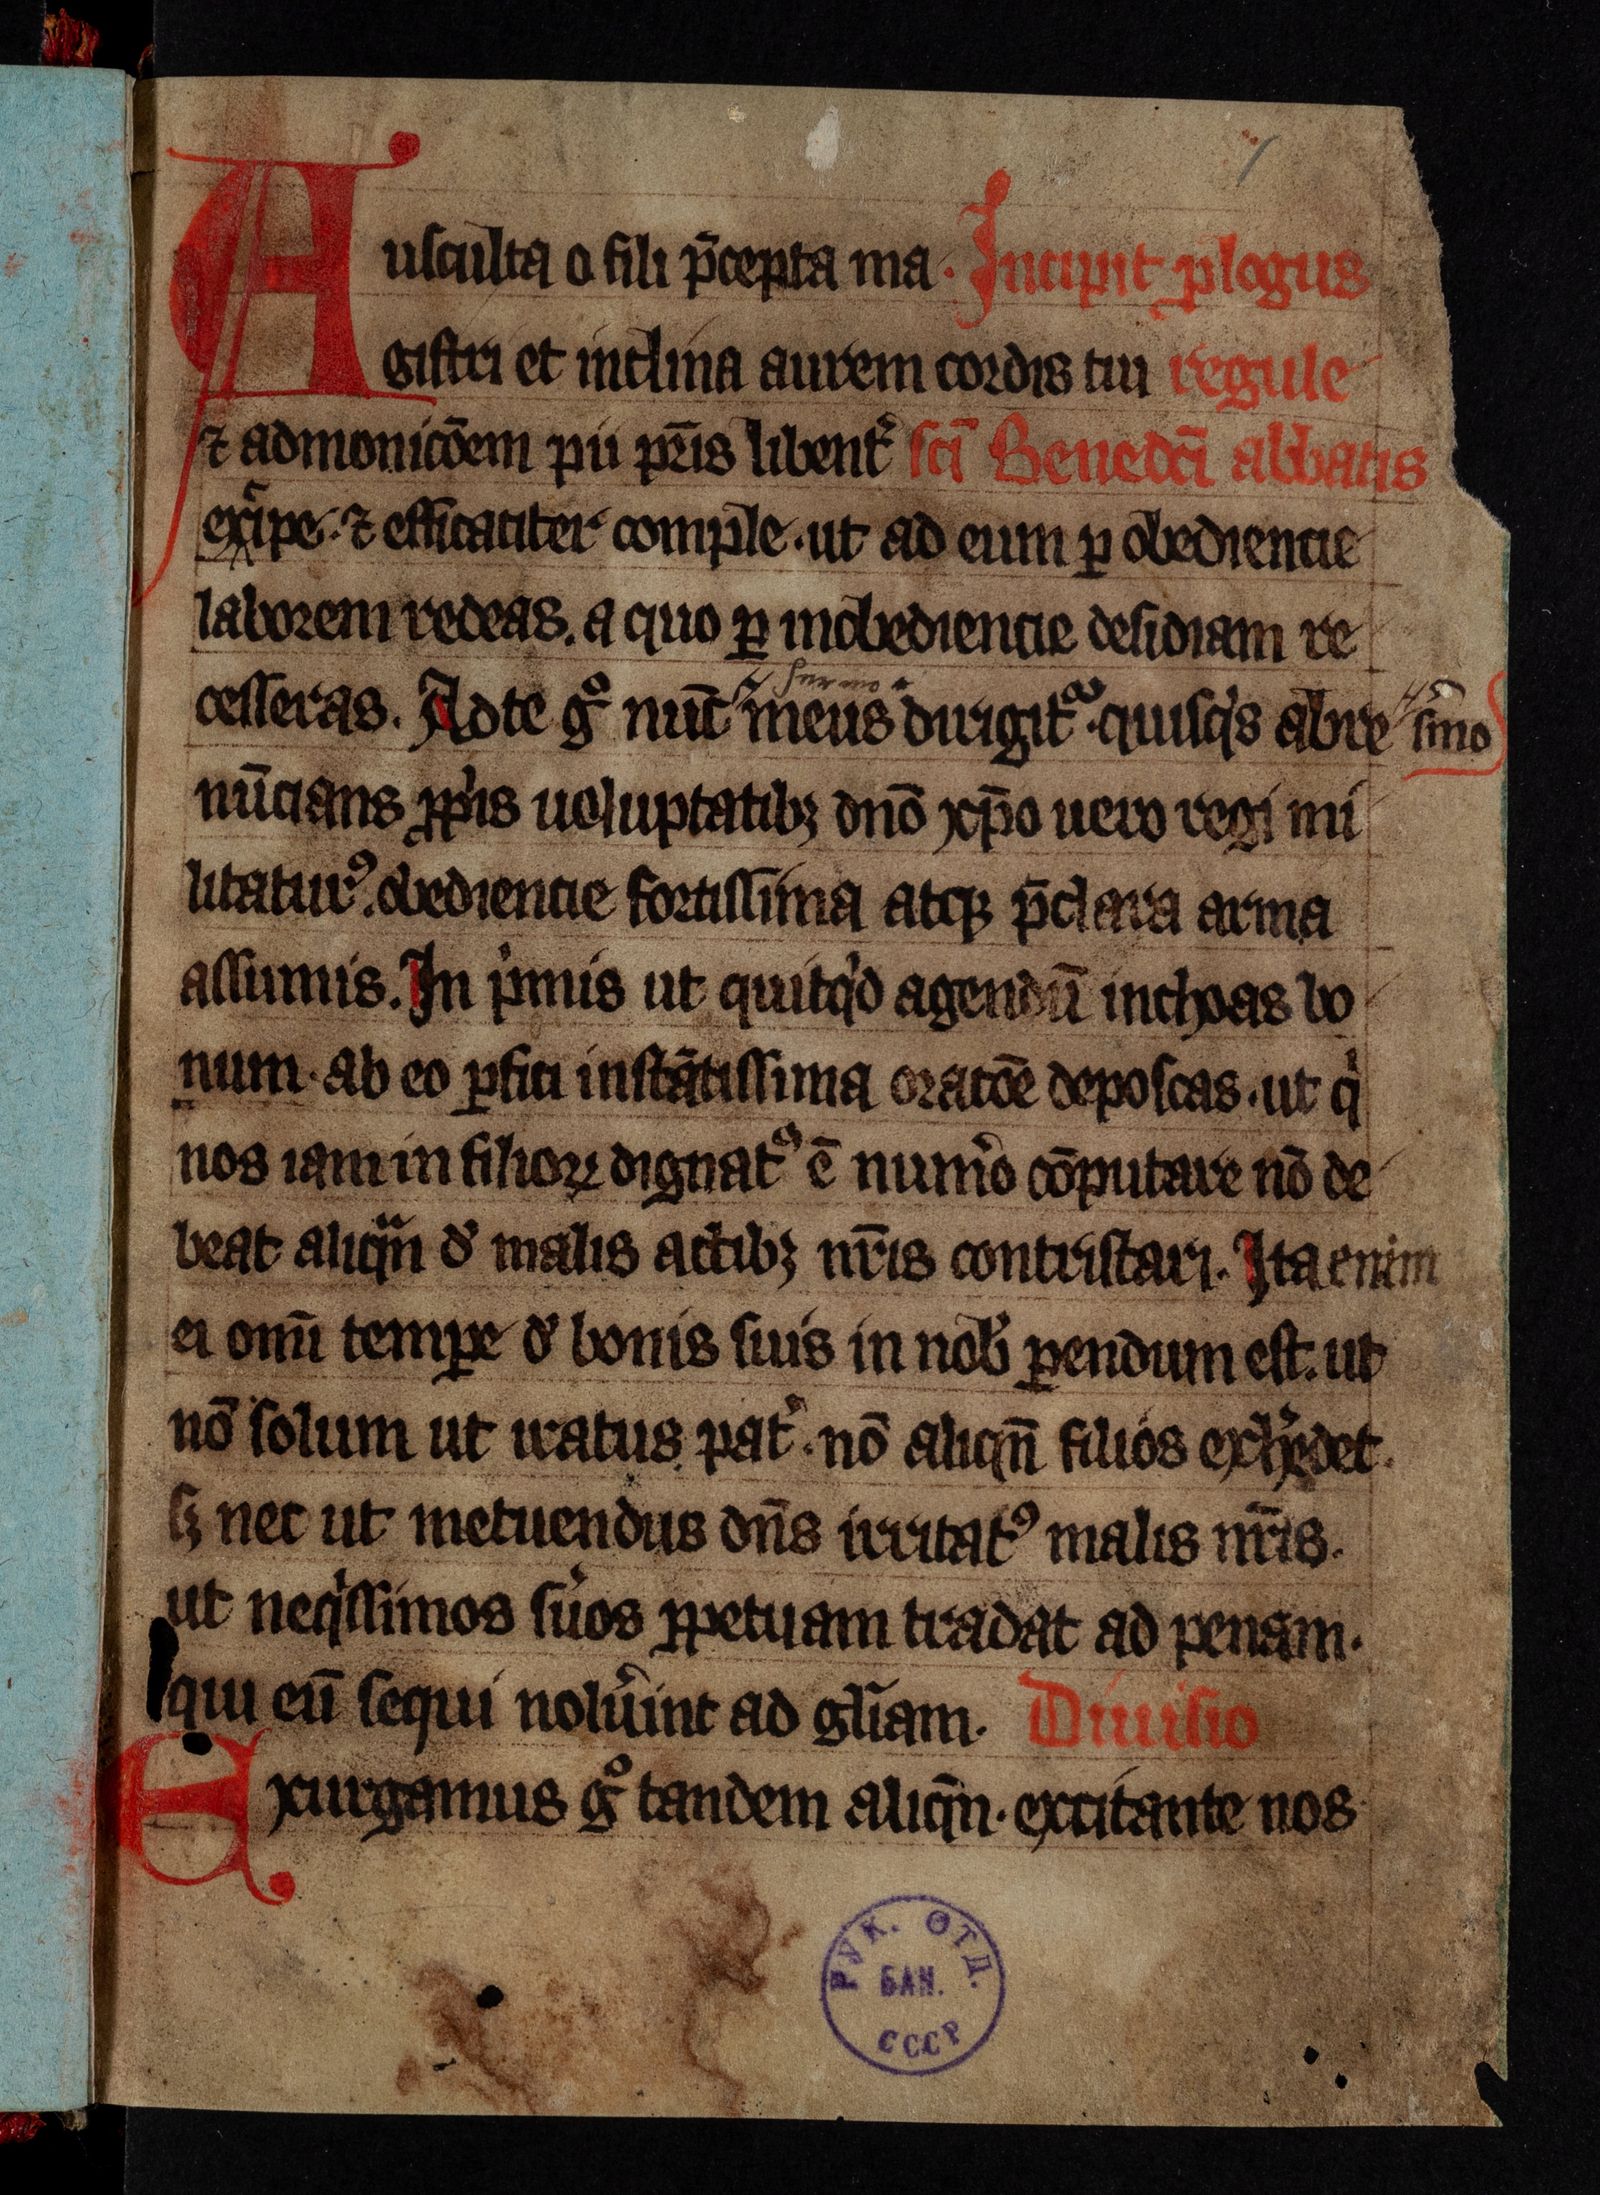 Ausculta o fili p̄cepta ma. Incipit ꝓlogus
gistri et inclina aurem cordis tui regule
⁊ admonicōem pii pr̄is libentˀ sc̄i Benedc̄i abbatis
excͥpe. ⁊ efficaciter comple. ut ad eum ꝑ obediencie
laborem redeas. a quo ꝑ inobediencie desidiam re
sermo
cesseras. Ad te gͦ nūc meus dirigit᷑. quisqͥs abre s̄mo
nūcians ꝓpͥis uoluptatibꝫ dn̄o xp̄o uero regi mi
litaturꝰ. obediencie fortissima atqꝫ p̄clara arma
assumis. In pͥmis ut quitqͥd agendū inchoas bo
num. ab eo ꝑfici instātissima oracōe deposcas. ut qͥ
nos iam in filioꝝ dignatꝰ ē numˀo cōputare nō de
beat aliqn̄ dˀ malis actibꝫ nr̄is contristari. Ita enim
ei om̄i tempꝑe dˀ bonis suis in nobˀ ꝑendum est. ut
nō solum ut iratus patˀ. nō aliqn̄ filios exhˀedet.
sꝫ nec ut metuendus dn̄s irritatꝰ malis nr̄is.
ut neqͥssimos sˀuos ꝑpetuam tradat ad penam.
qui eū sequi noluˀint ad gl̄iam. Diuisio
Exurgamus gͦ tandem aliqn̄. excitante nos
РУК. ОТД.
БАН.
СССР